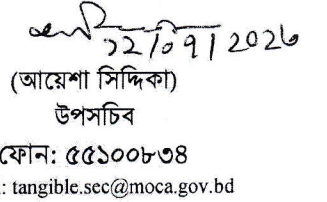 (আয়েশা সিদ্দিকা)
উপসচিব
ফোন: ৫৫১০০৮৩৪
: tangible.sec@moca.gov.bd